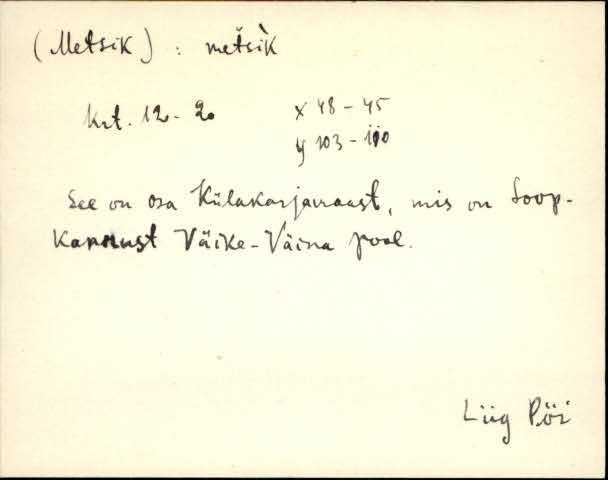 (Metsik) : metsìk
krt. 12-2 x 48-45
y 103-110
See on osa Külakarjamaast, mis on Soop-
Kannust Väike-Väina pool.
Liig Pöi